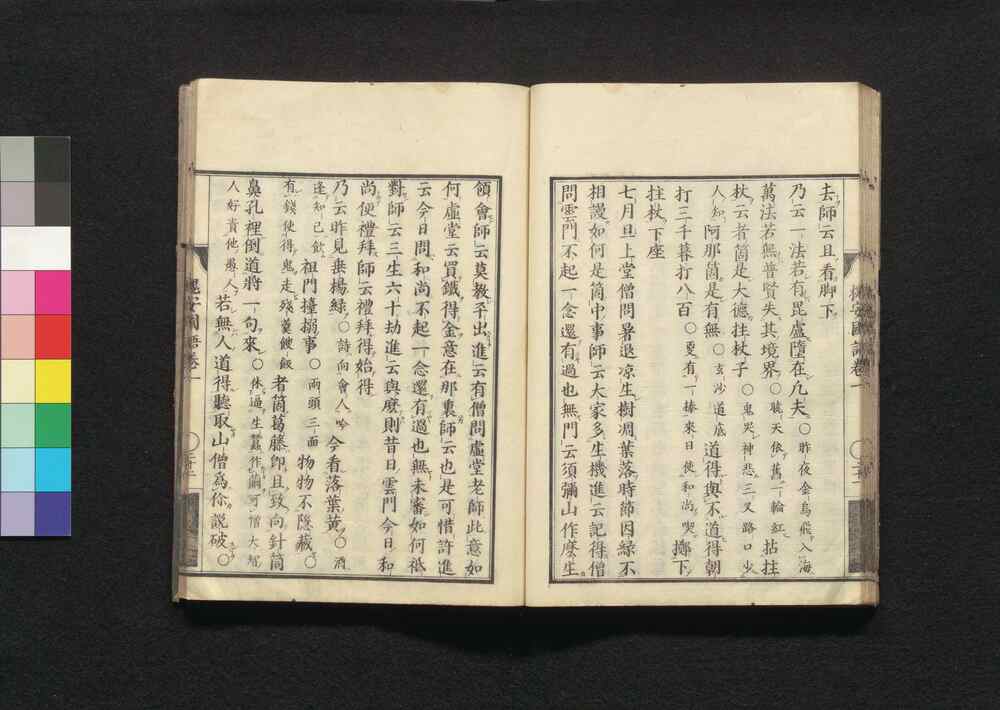 去師云且看脚下
乃云一法若有毘盧墮在凡夫○昨夜金烏飛入海
萬法若無普賢失其境界○曉天依舊一輪紅拈拄
杖云者箇是大德拄杖子○鬼哭神悲三叉路口少
人知阿那箇是有無○玄沙道底道得與不道得朝
打三千暮打八百○更有一棒來日使和尚喫擲下
拄杖下座
七月旦上堂僧問暑退凉生樹凋葉落時節因緣不
相謾如何是箇中事師云大家多生機進云記得僧
問雲門不起一念還有過也無門云須彌山作麼生
領會師云莫教平出進云有僧問虛堂老師此意如
何虛堂云買鐵得金意在那裏師云也是可惜許進
云今日問和尚不起一念還有過也無未審如何祗
對師云三生六十劫進云與麼則昔日雲門今日和
尚便禮拜師云禮拜得始得
乃云昨見垂楊綠○詩向會人吟今看落葉黃○酒
逢知己飲祖門撞搦事○兩頭三面物物不隱藏○
有錢使得鬼走殘羹餿飯者箇葛藤卽且致向針筒
鼻孔裡倒道將一句來○休過生蠶作繭可憎大智
人好責他愚人若無人道得聽取山僧爲徐說破○
槐安國語卷一